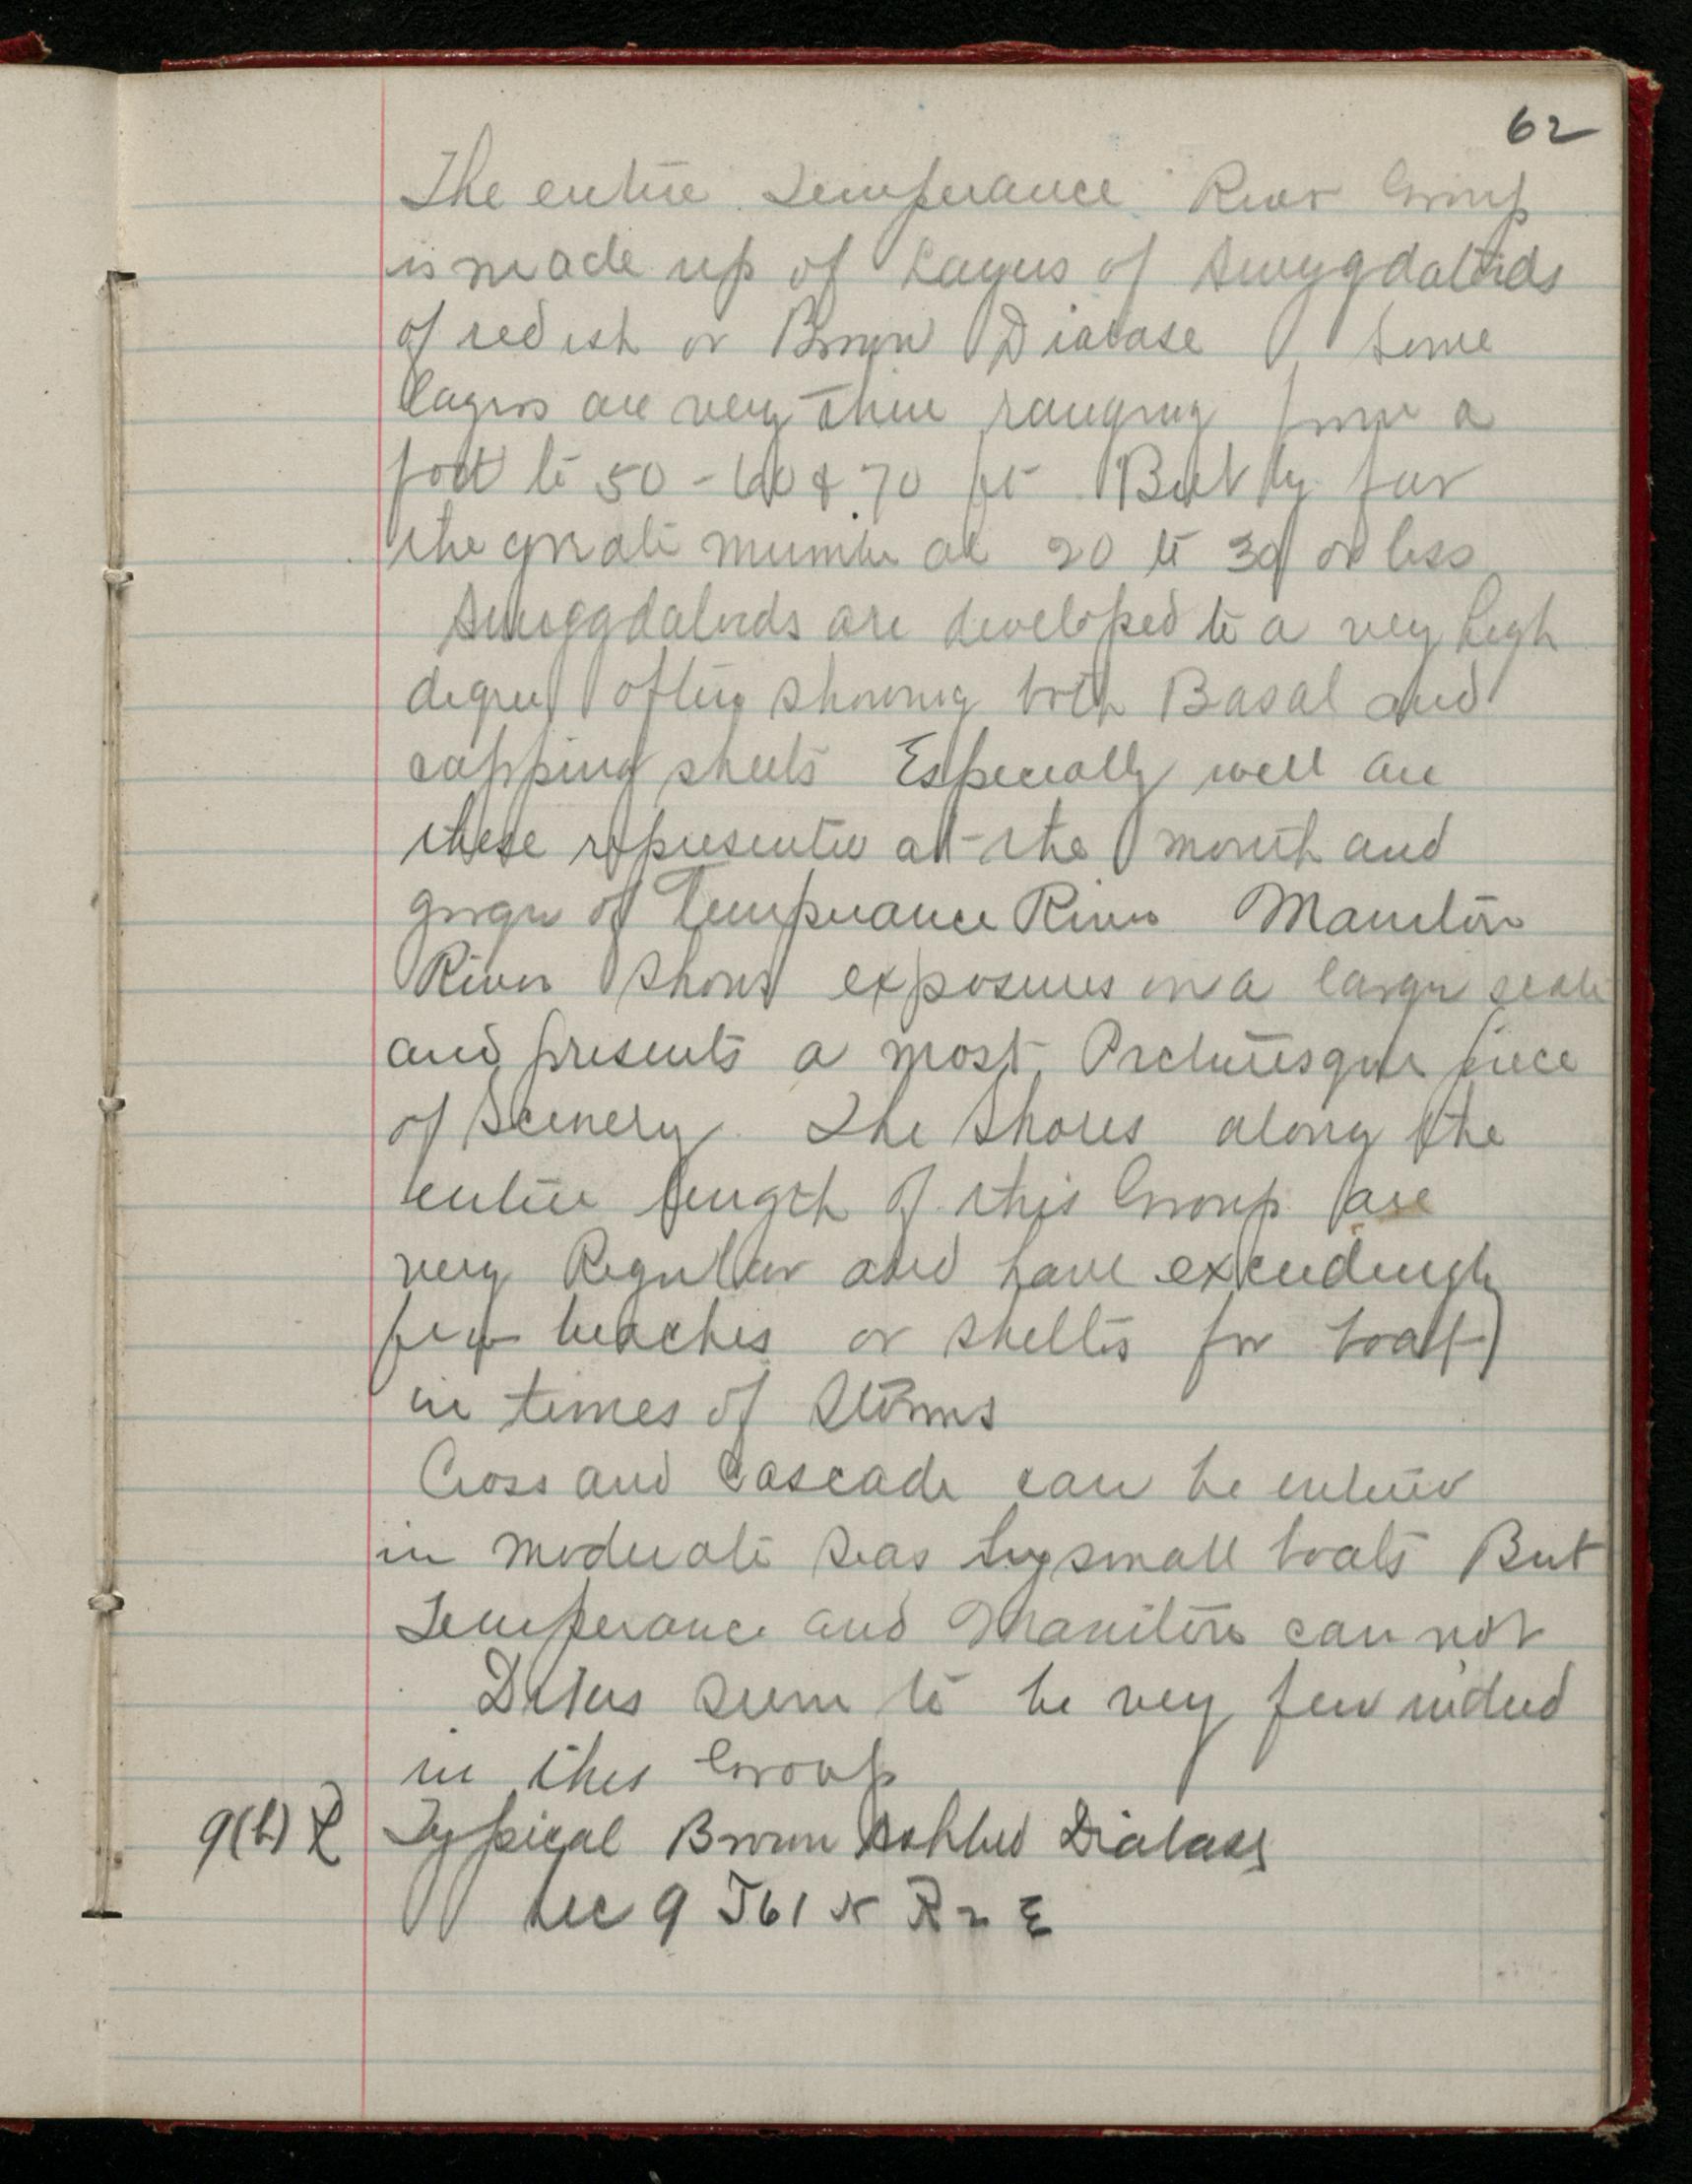 62
The entire Temperance River Group
is made up of Layers of Amygdaloids
of redish or Brown Diabase Some
layers are very thin ranging from a
foot to 50 - 60 & 70 ft. But by far
the greate number are 20 to 30 or less
Amoggdaloids are developed to a very high
degree often showing both Basal and
capping sheets Especially well are
these represented at the mouth and
gorge of Temperance River Manitou
River shows exposures on a large scale
and presents a most Picturesque piece
of Scenery. The Shores along the
entire length of this Group are
very Regular and have exceedingly
few beaches or shelters for boats
in times of Storms
Cross and Cascade can be entered
in moderate seas by small boats But
Temperance and Manitou can not
Dikes seem to be very few indeed
in this Group
9(h) Typical Brown Diabase
Sec 9 T61 N R 2 E